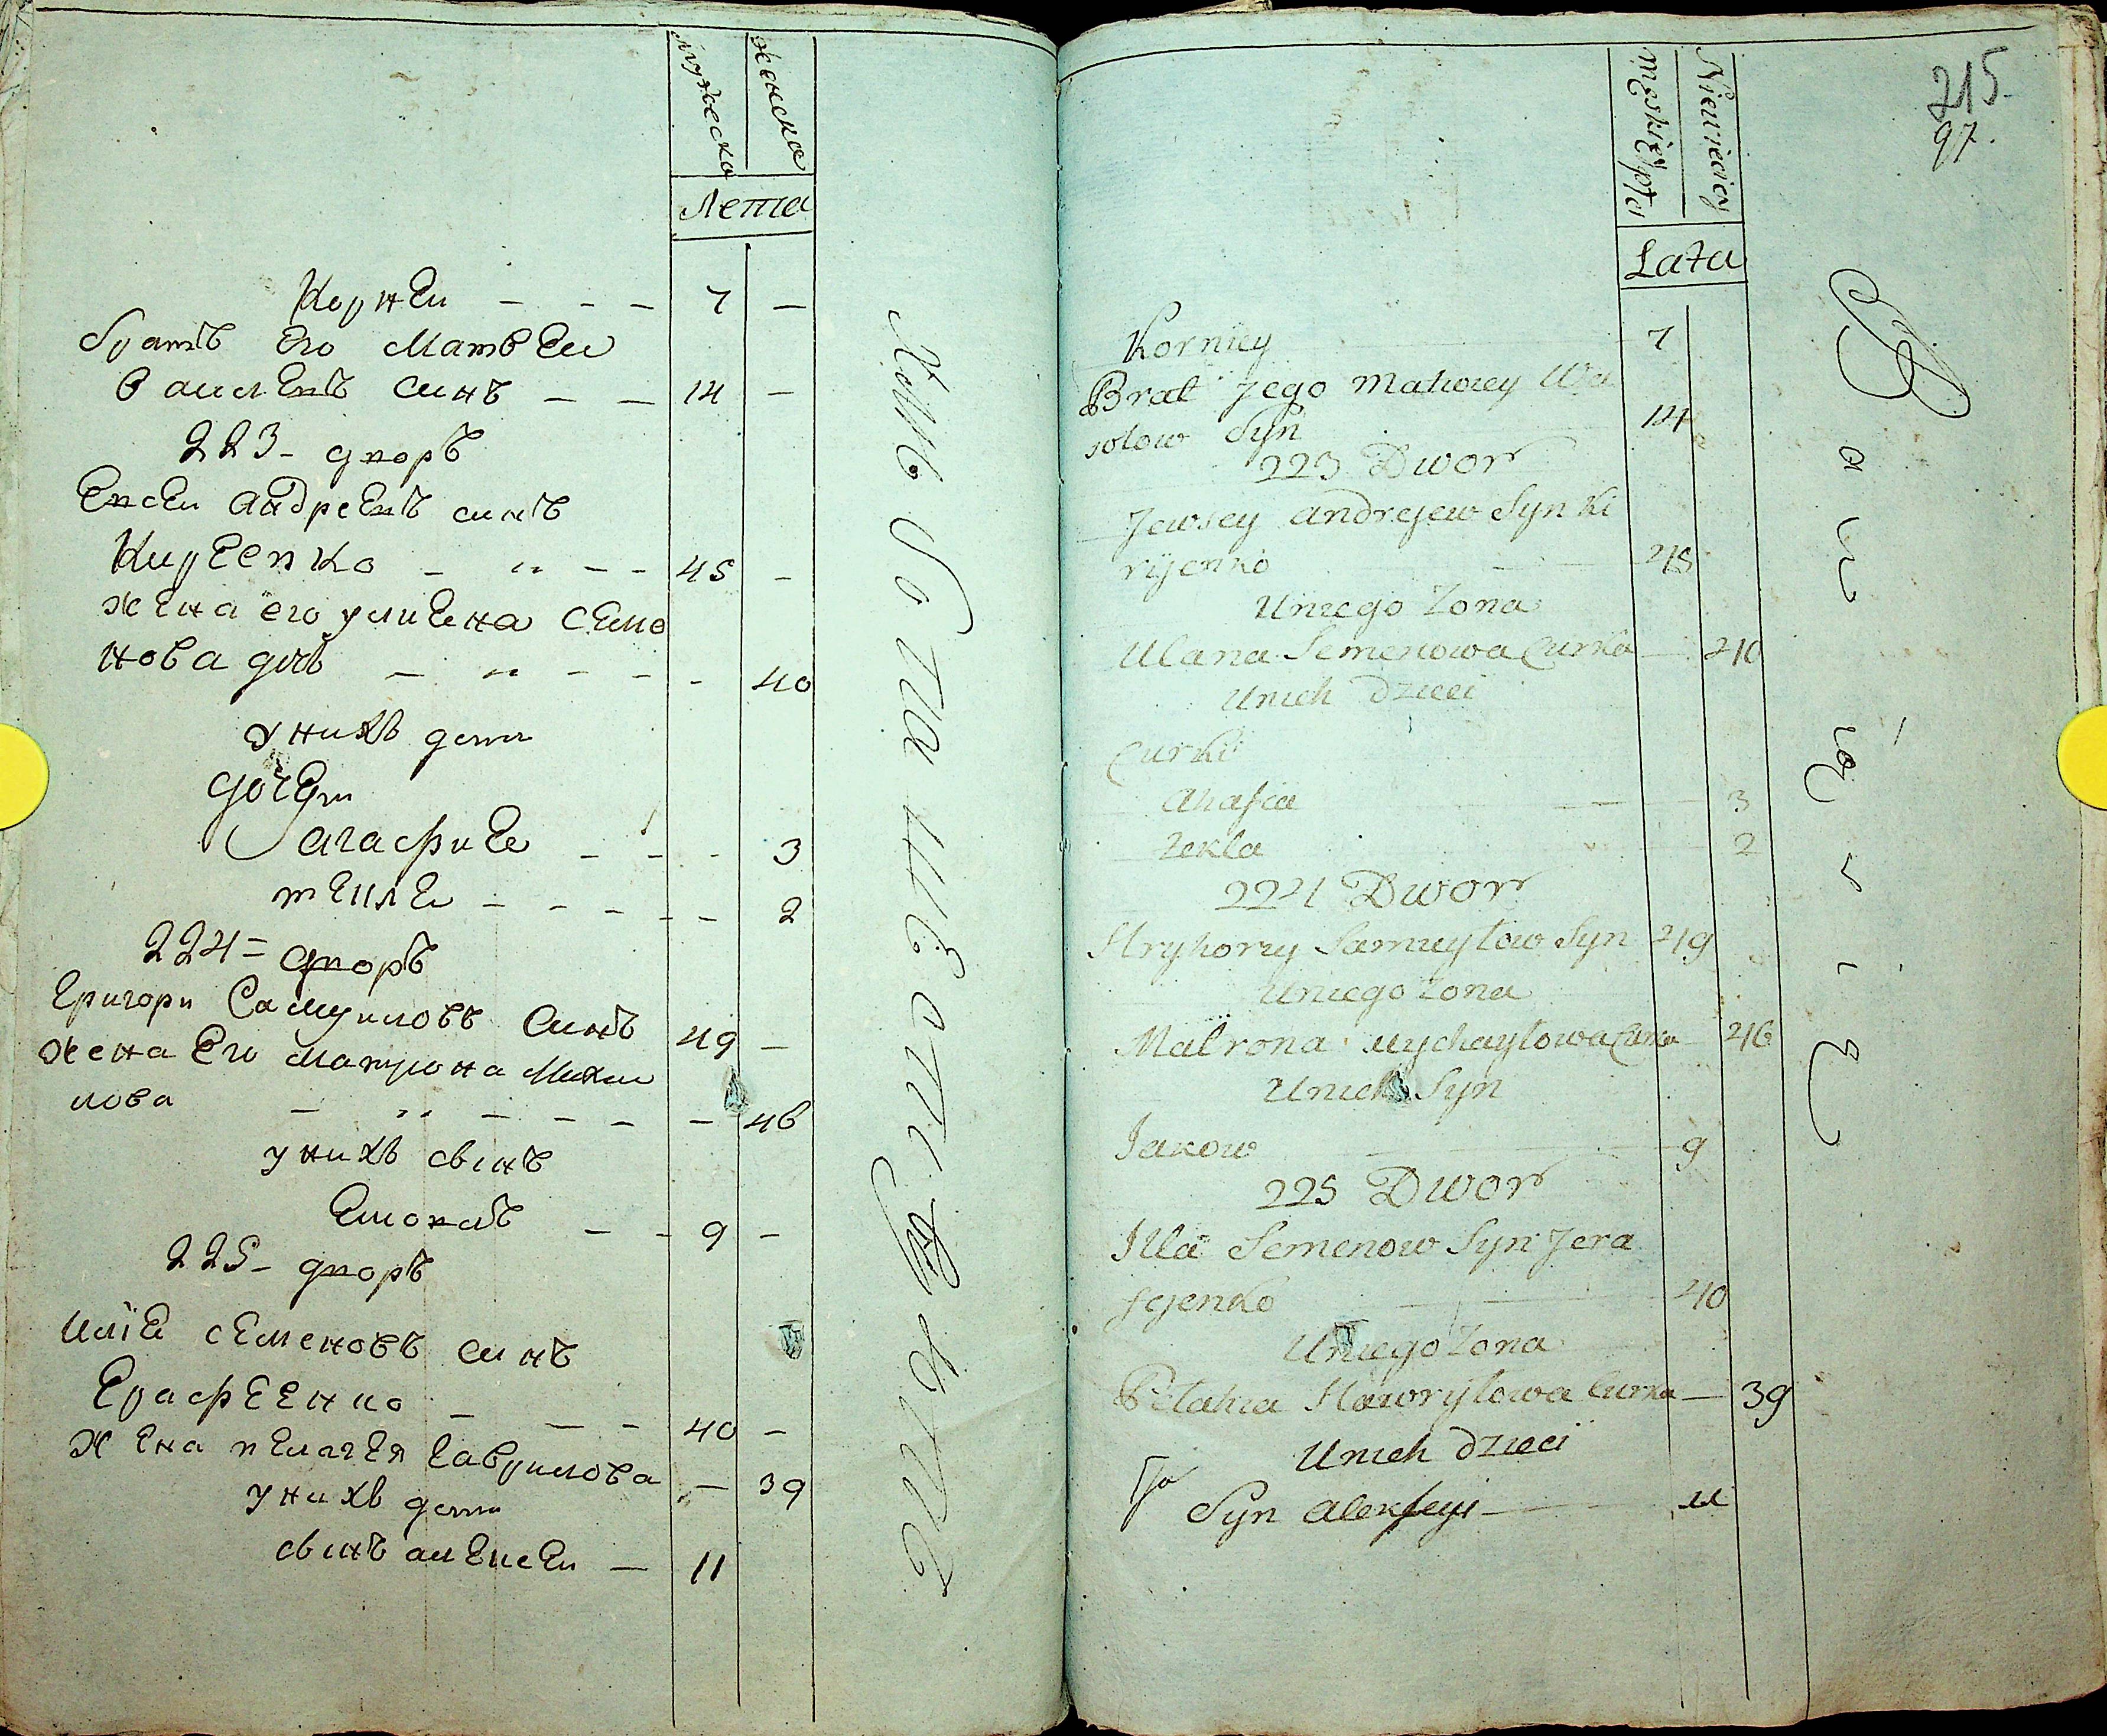 мужеска
женска
Лета
Корнеи — — — 7 —
братъ его Матвеи
Василевъ синъ — — 14 —
223 - дворъ
Евсеи Андреевъ синъ
Киреевко — „ — — 45 —
жена его улиена Семе
нова дочь — „ — — - 40
у нихъ дети
дочери
агафие — — - 3
текле — — — — — 2
224 = дворъ
Григори Самуиловъ Синъ 49 —
жена Его матрона Михаи
лова — „ — — — — 46
у нихъ сынъ
Еяковъ — - 9 —
225 - дворъ
Илїе семеновъ синъ
Ерафеенко — — — 40 —
жена пелагея Гаврилова — 39
у нихъ дети
сынъ алексеи — 11
215
97.
Męskiey płci
Niewieciey
Lata
Korniey 7
Brat Jego Matwiey Wa
sylow Syn 14
223 Dwor
Jewsey Andrejew Syn Ki
ryjenko 45
U niego Zona
Ulana Semenowa Curka 40
U nich dzieci
Curki
Ahafia 3
Tekla 2
224 Dwor
Hryhorry Samuyłow Syn 49
U niego Zona
Matrona Mychayłowa Curka 46
U nich Syn
Jakow 9
225 Dwor
Illa Semenow Syn Jera
fejenko 40
U niego Zona
Pelahia Hawryłowa Curka — 39
U nich dzieci
Syn Alexsey — 11